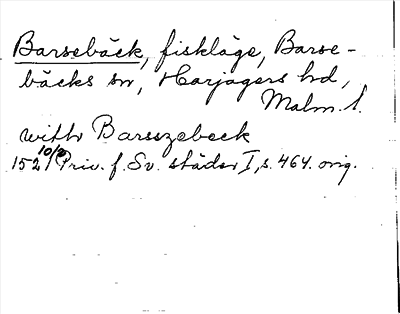 Barsebäck, fiskläge, Barse-
bäcks sn, Harjagers hd,
Malm. l.
withr Barsszebeck
1521 10/2 Priv. f. Sv. städer I, s. 464. orig.